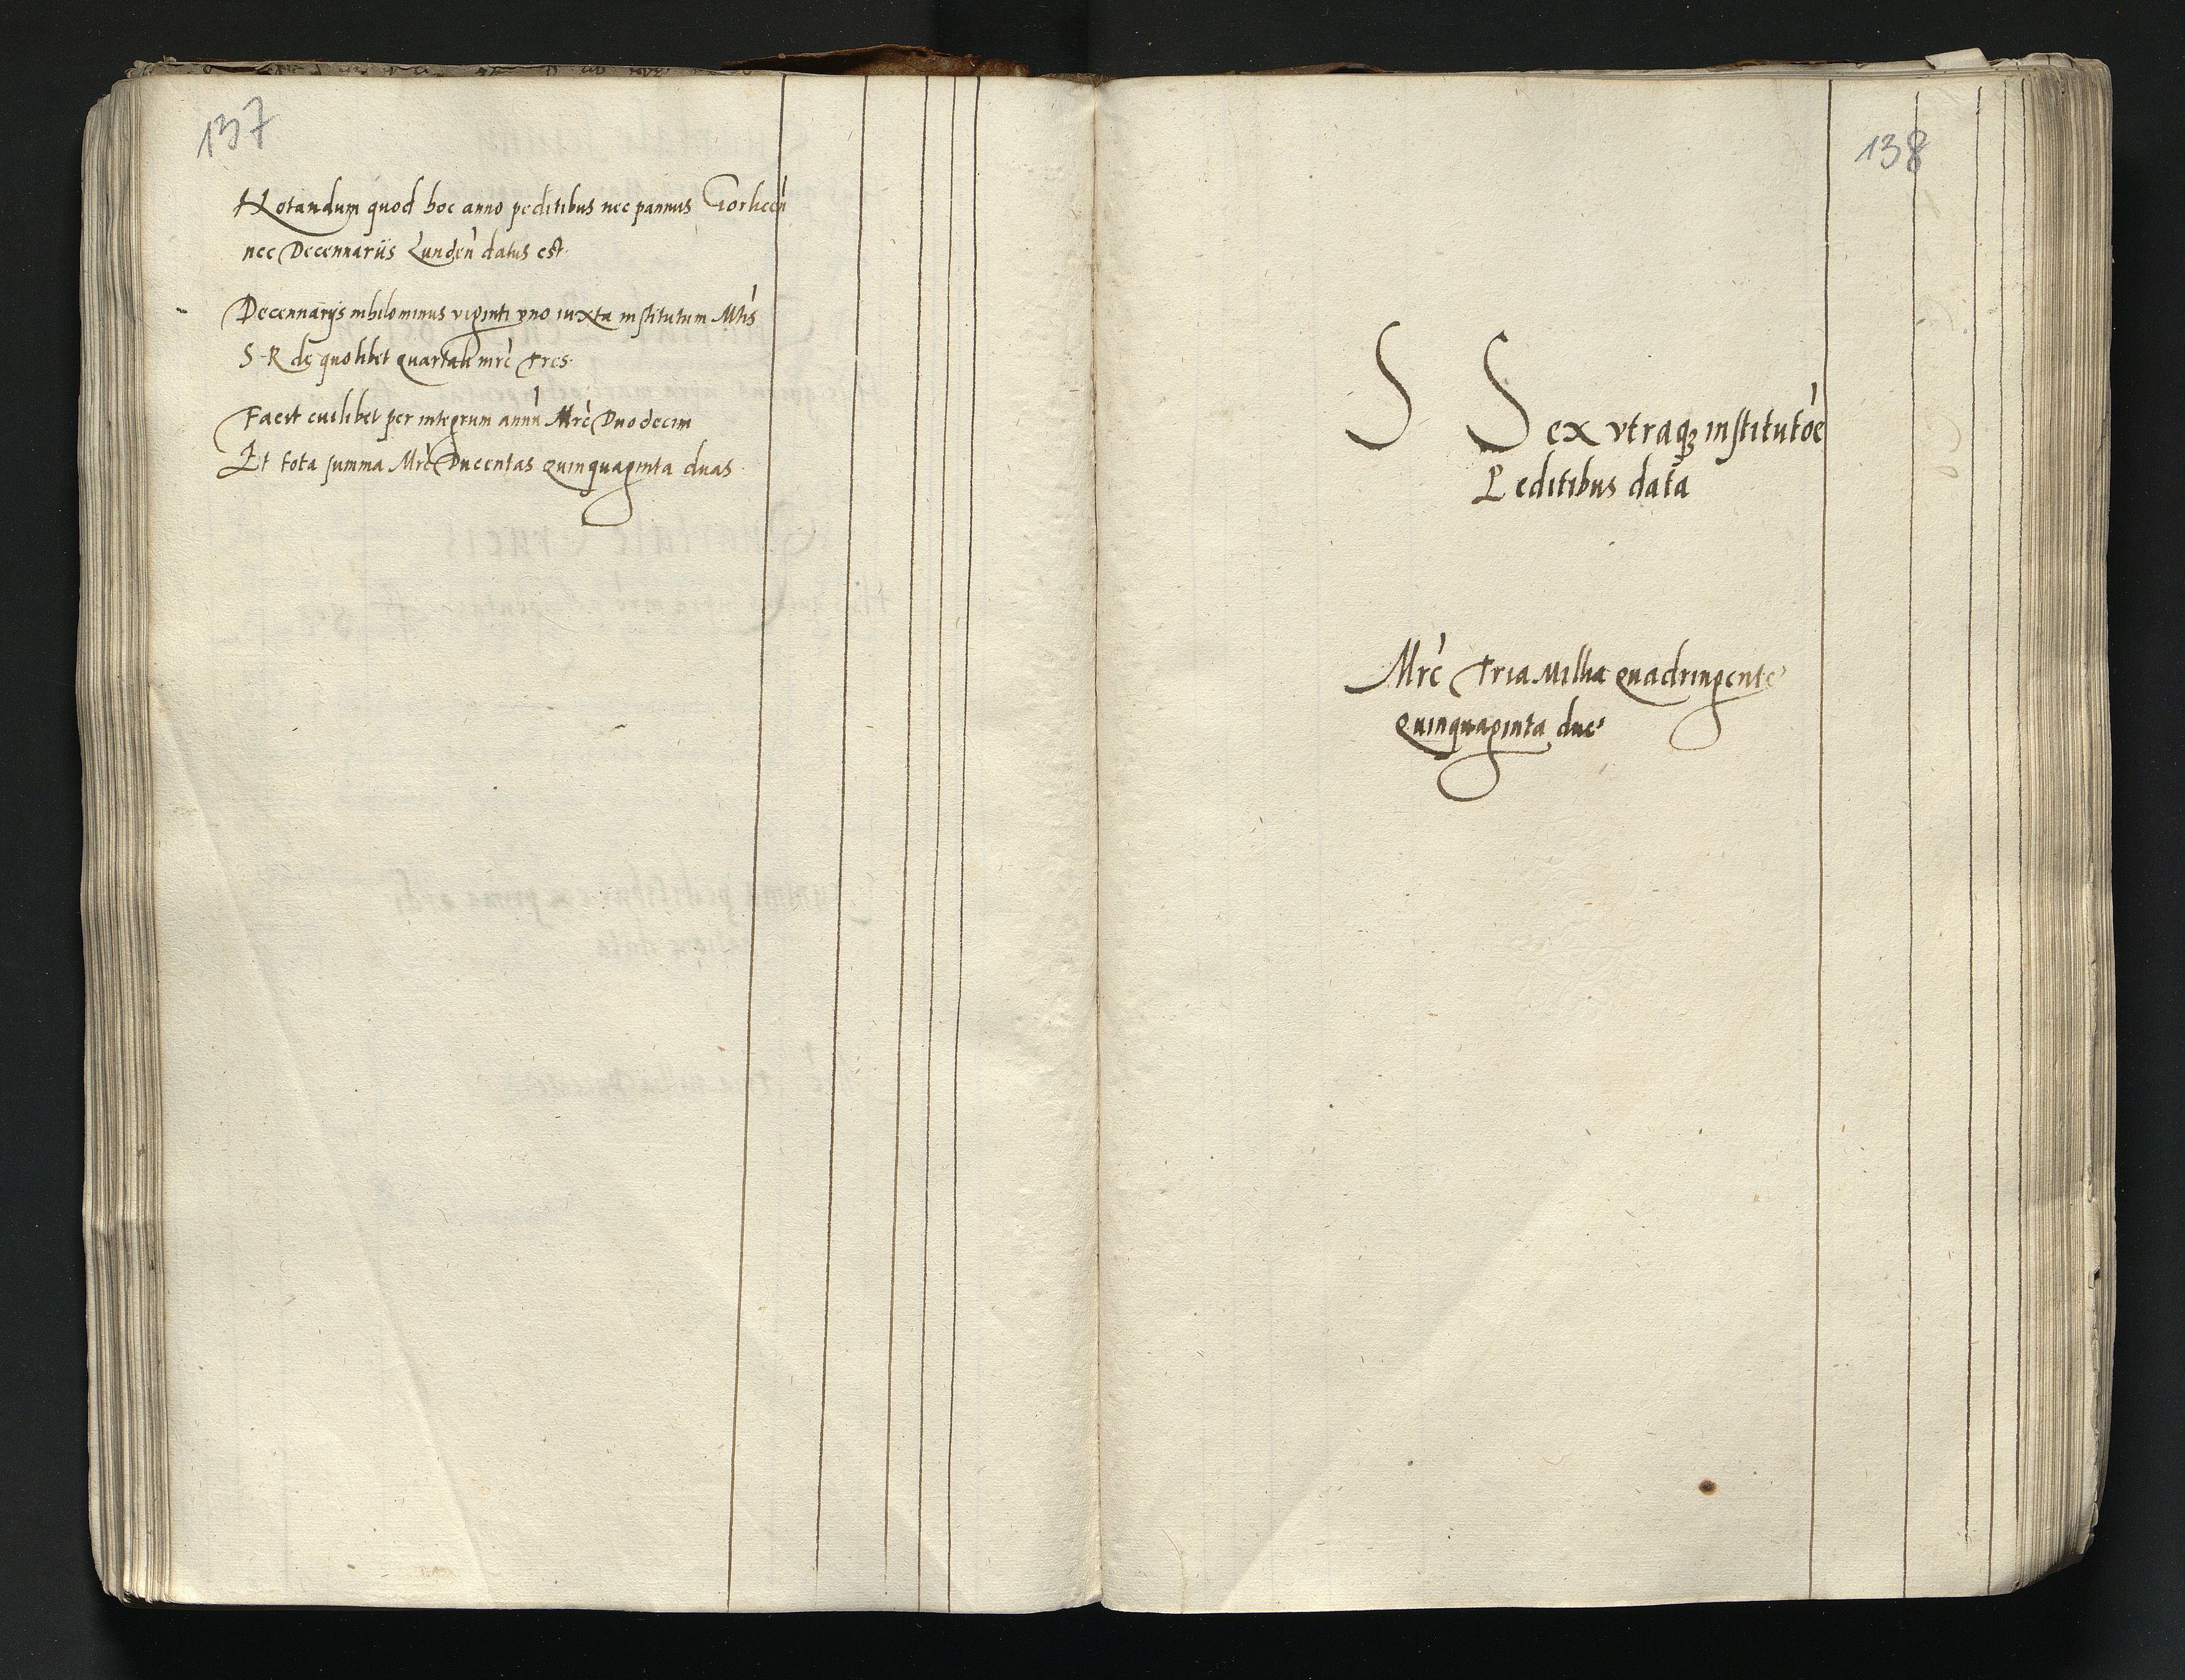 137
Notandum quod hoc anno peditibus nec pannus Gorlicen̄
nec Decennariis Lunden̄ datus est.
Decennarijs nihilominus viginti vno iuxta institutum Mtis
S. R. de quolibet quartali mrc tres.
Facit cuilibet per integrum annū Mrc Duodecim
Et tota summa Mrc Ducentas quinquaginta duas.
138
S S ex vtraq; institutōe
Peditibus data
Mrc tria Millia quadringente
quinquaginta due